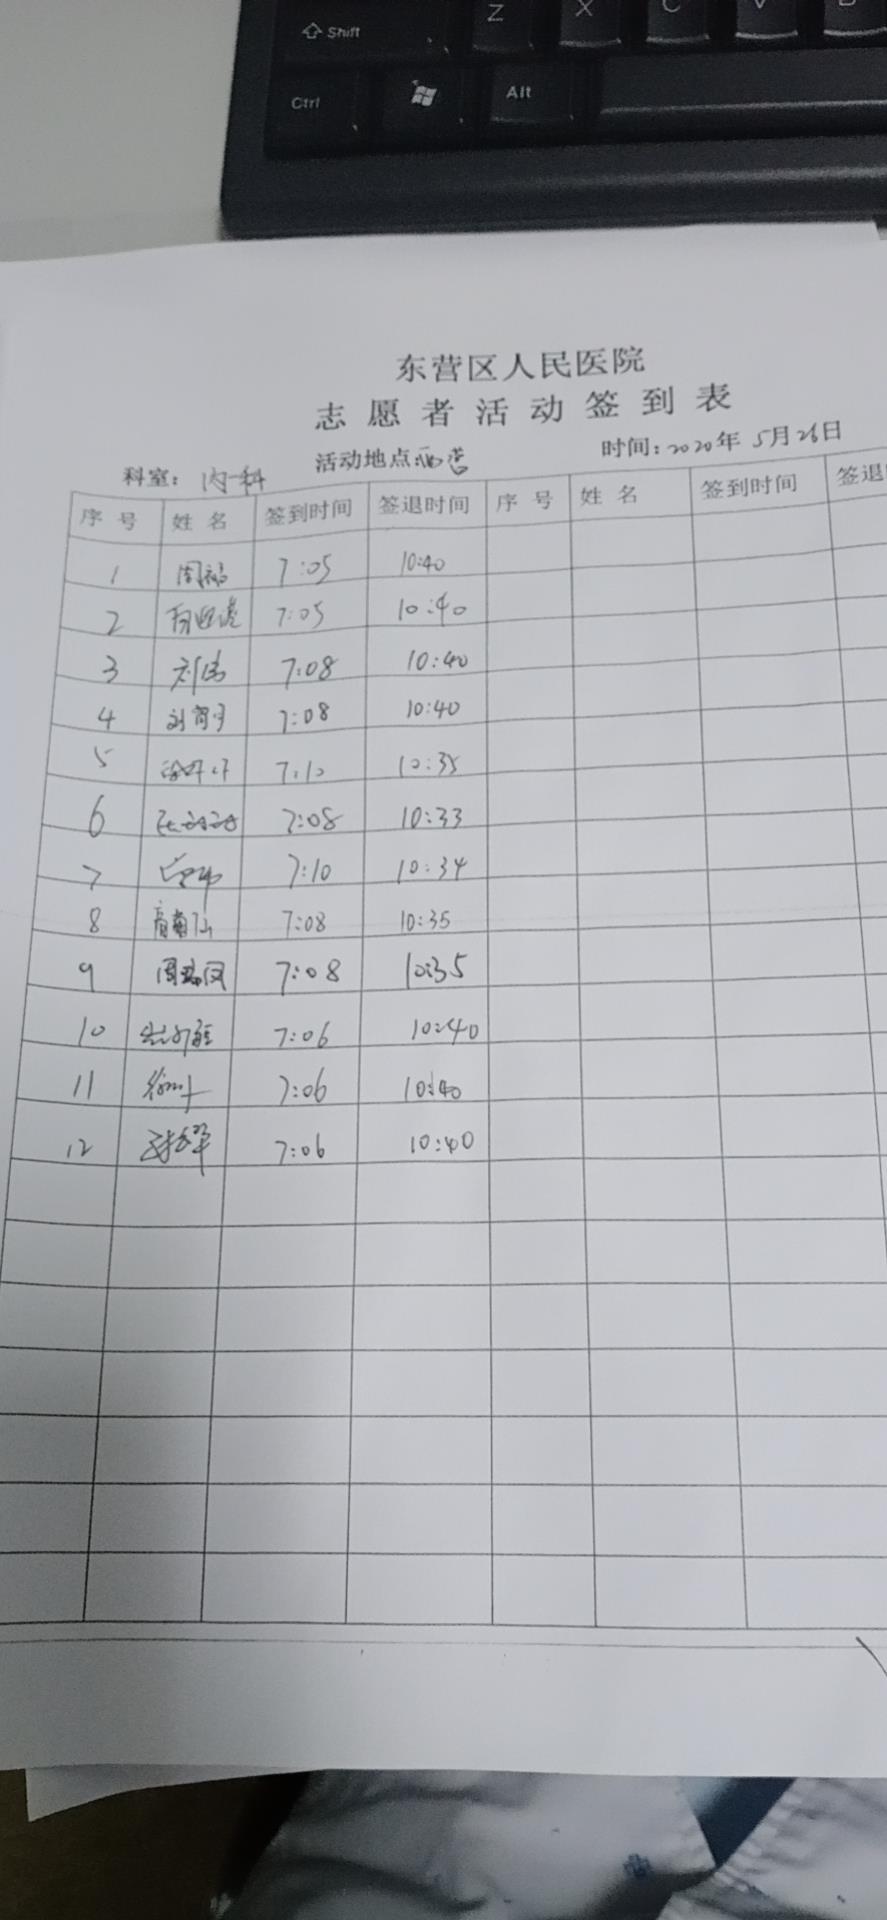 Shift Z X C V B
Ctrl Alt
东营区人民医院
志愿者活动签到表
科室：内一科 活动地点 时间：2020年5月26日
序号 姓名 签到时间 签退时间 序号 姓名 签到时间 签退
1 7:05 10:40
2 7:05 10:40
3 7:08 10:40
4 7:08 10:40
5 7:10 10:35
6 7:08 10:33
7 7:10 10:34
8 7:08 10:35
9 7:08 10:35
10 7:06 10:40
11 7:06 10:40
12 7:06 10:40